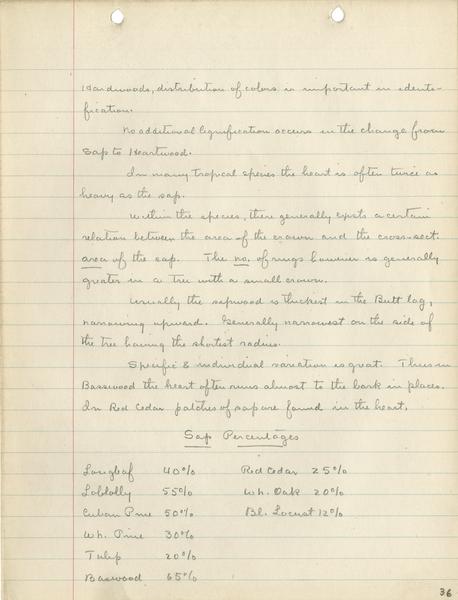 Hardwoods, distribution of colors is important in identi-
fication.
No additional lignification occurs in the change from
Sap to Heartwood.
In many tropical species the heart is often twice as
heavy as the sap.
Within the species, there generally exists a certain
relation between the area of the crown and the cross-sect.
area of the sap. The no. of rings however is generally
greater in a tree with a small crown.
Usually the sapwood is thickest in the Butt log,
narrowing upward. Generally narrowest on the side of
the tree having the shortest radius.
Specific & individual variation is great. Thus in
Basswood the heart often runs almost to the bark in places.
In Red Cedar patches of sap are found in the heart.
Sap Percentages
Longleaf 40% Red Cedar 25%
Loblolly 55% Wh. Oak 20%
Cuban Pine 50% Bl. Locust 12%
Wh. Pine 30%
Tulip 20%
Basswood 65%
36